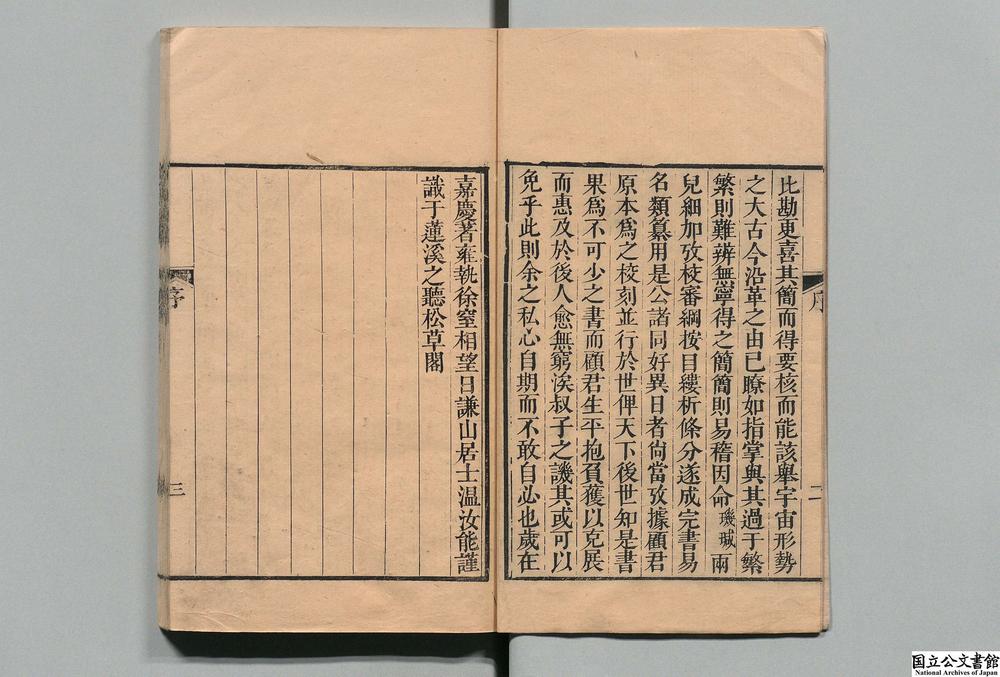 比勘更喜其簡而得要核而能該舉宇宙形勢
之大古今沿革之由已瞭如指掌與其過于繁
繁則難辨無寧得之簡簡則易稽因命璣瑊兩
兒細加攷校審綱按目縷析條分遂成完書易
名類纂用是公諸同好異日者尙當攷據顧君
原本爲之校刻並行於世俾天下後世知是書
果爲不可少之書而顧君生平抱負獲以克展
而惠及於後人愈無窮涘叔子之譏其或可以
免乎此則余之私心自期而不敢自必也歲在
序
二
嘉慶著雍執徐窒相望日謙山居士温汝能謹
識于蓮溪之聽松草閣
序
三
国立公文書館
National Archives of Japan